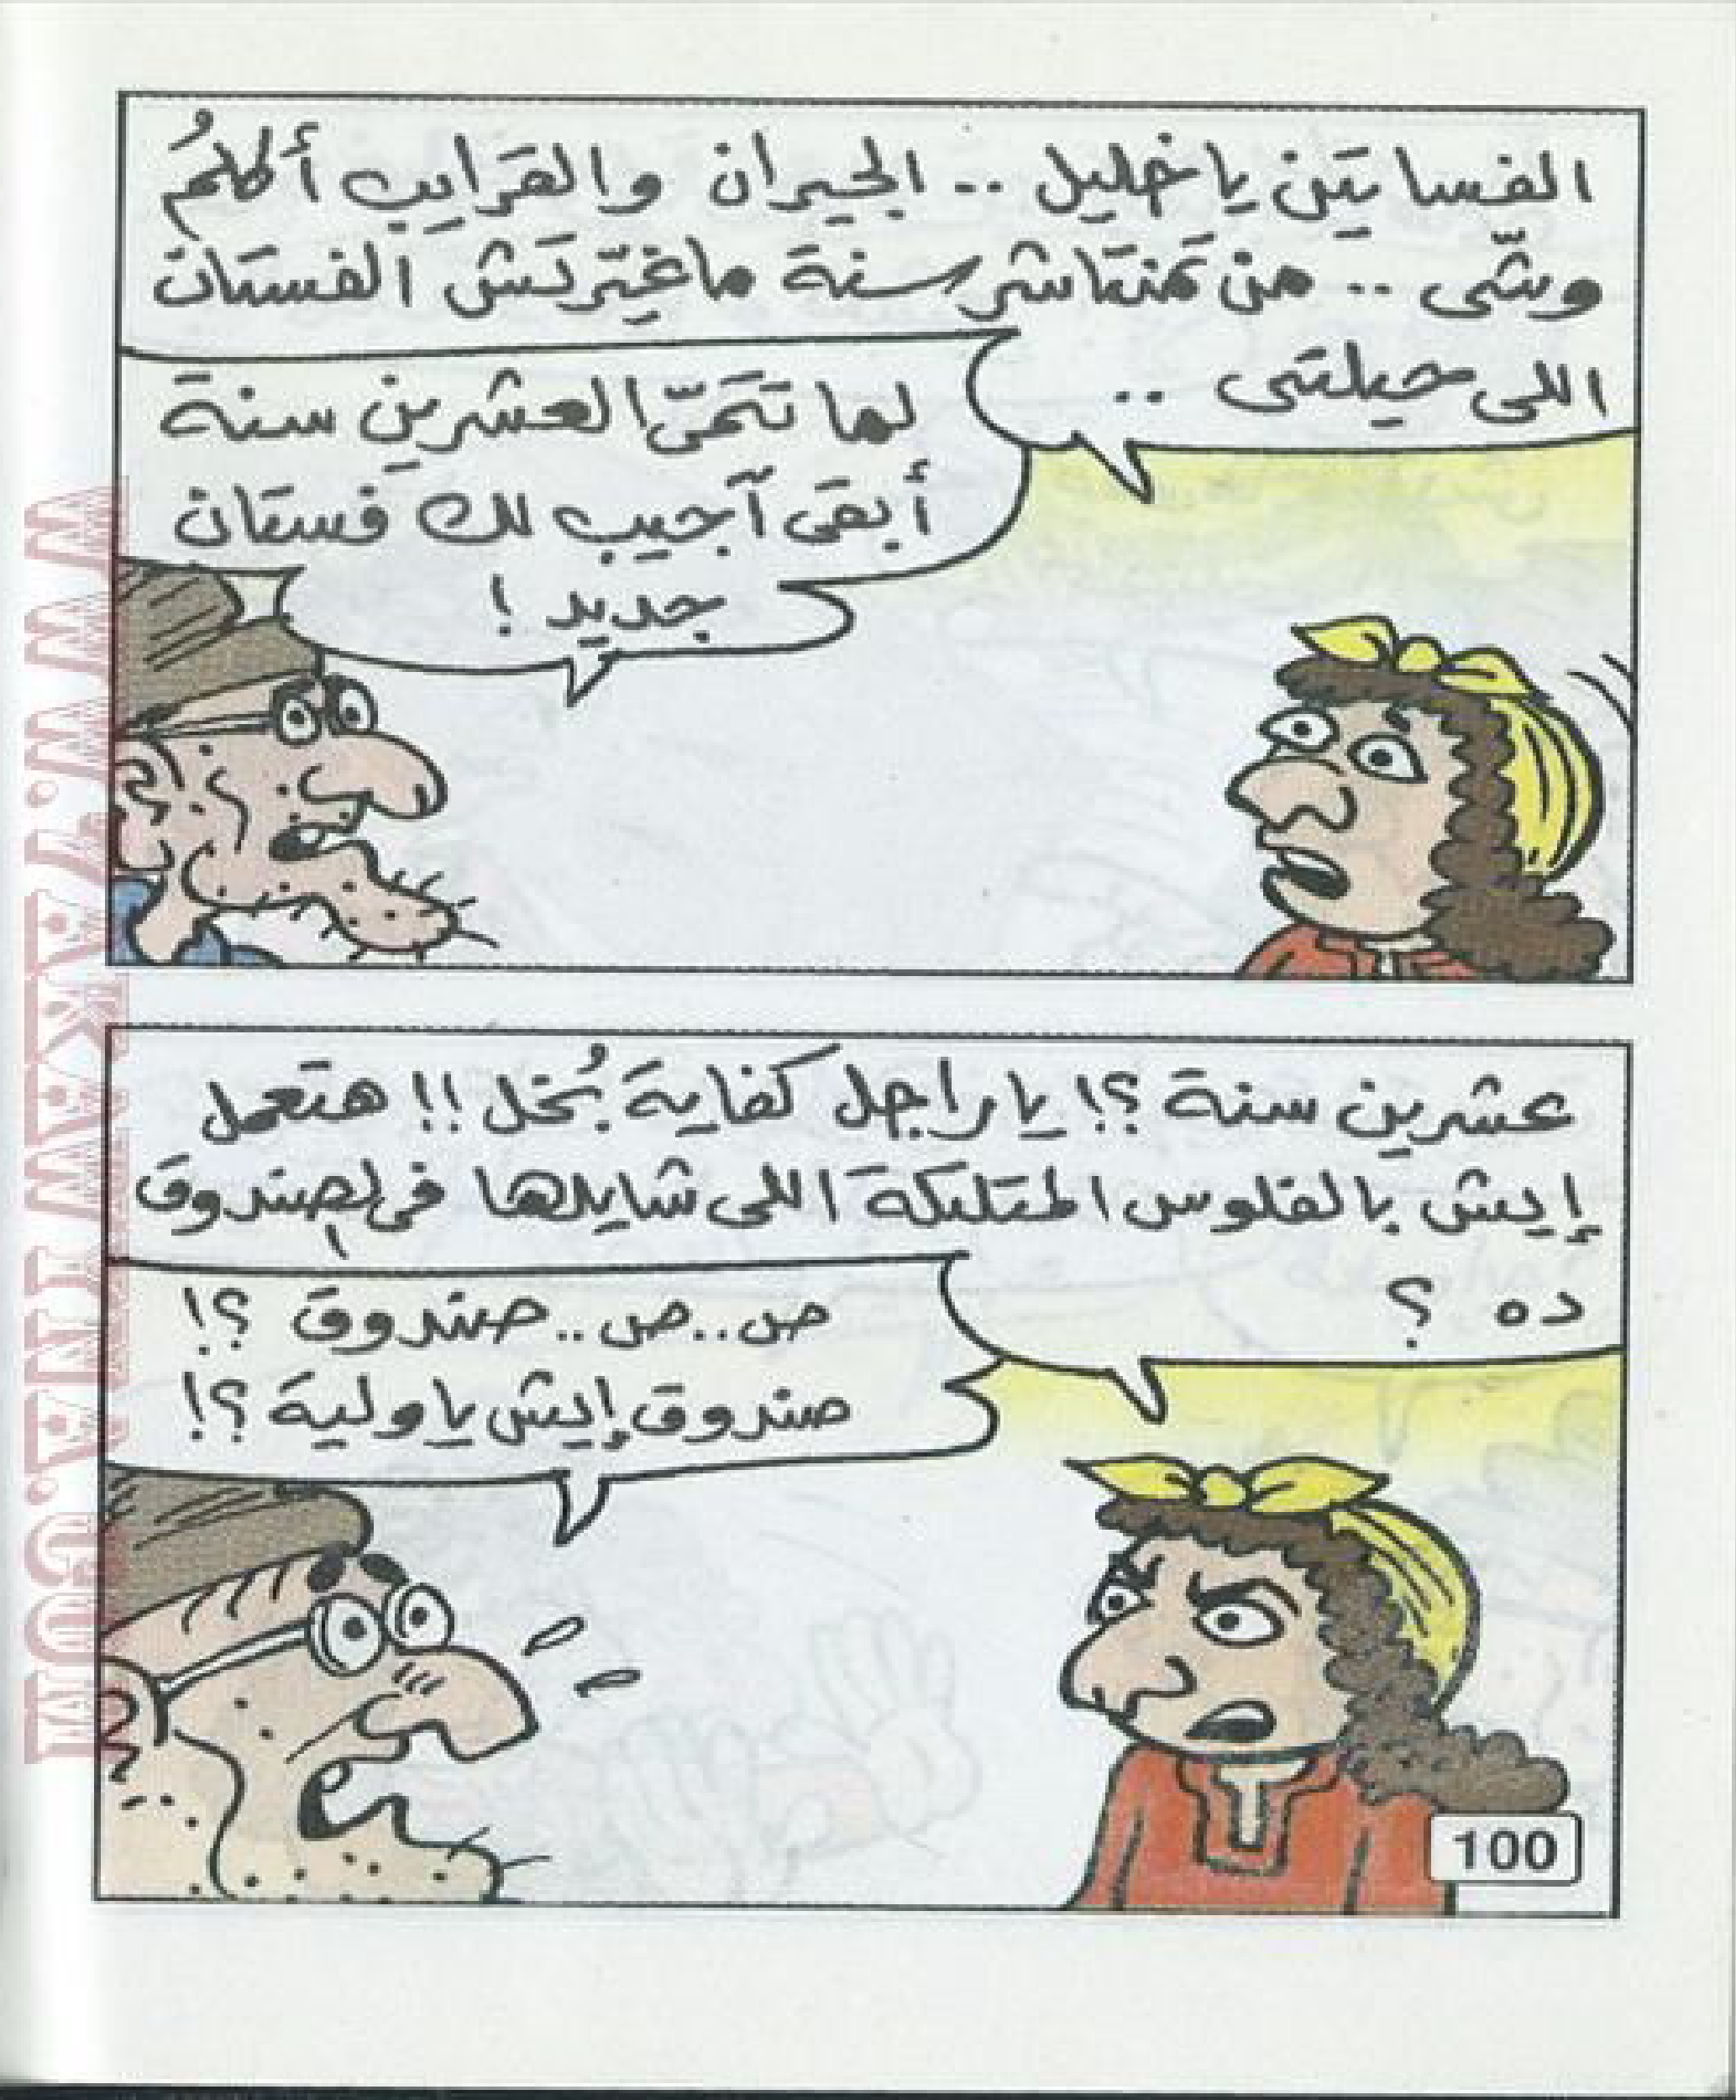 الفساتين يا خليل .. الجيران والقرايب أكلمُ
وشّى .. من تمنتاشر سنة ما غيّرتش الفستان
اللى حيلتى ..
لما تتمّى العشرين سنة
أبقى آجيب لك فستان
جديد !
عشرين سنة ؟! يا راجل كفاية بُخل !! هتعمل
إيش بالفلوس المتلتلة اللى شايلها فى الصندوق
ده ؟
ص..ص..صندوق ؟!
صندوق إيش يا ولية ؟!
100
WWW.7AKAWINA.COM